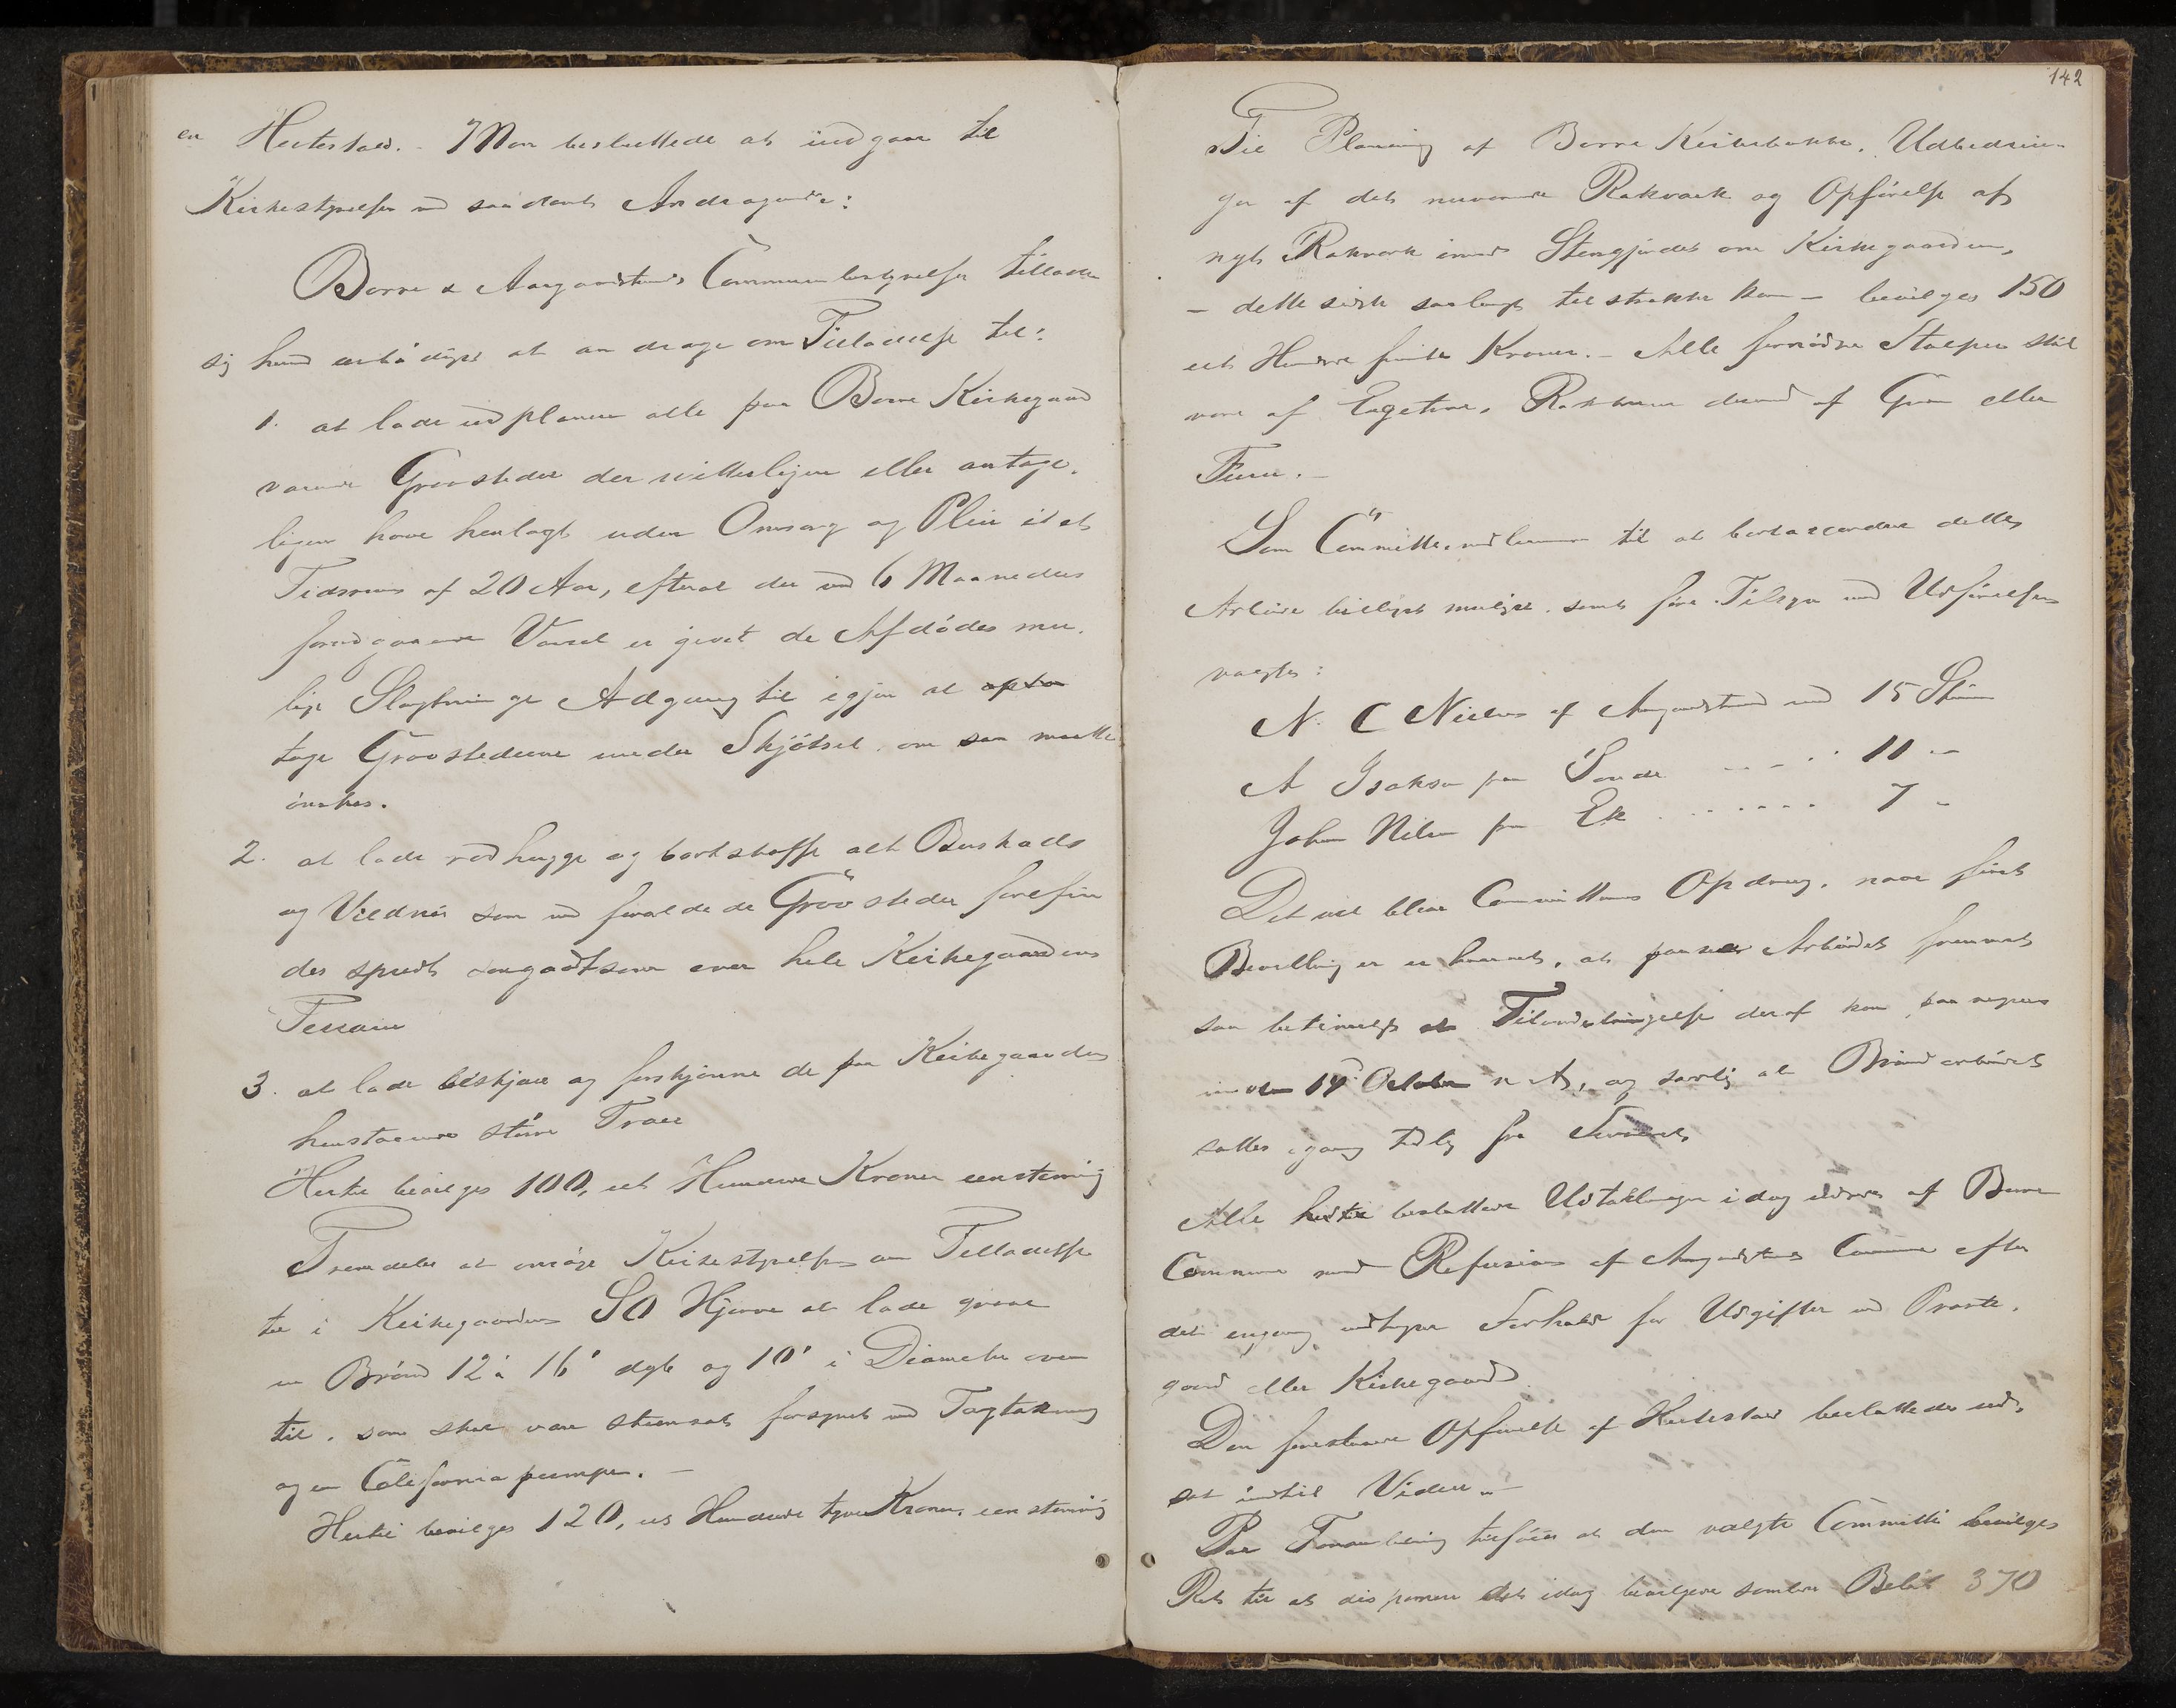 en Hestestald. - Man besluttede at indgaa til
Kirkestyrelsen med saadant Andragende:
Borre & Aasgaardstrands Communebestyrelse tillader
sig herved ærbødigst at andrage om Tilladelse til:
1. at lade udplanere alle paa Borre Kirkegaard
værende Gravsteder der vitterligen eller antage-
ligen have henlagt uden Omsorg og Pleie i et
Tidsrum af 20 Aar, efterat der ved 6 Maaneders
forudgaaende Varsel er givet de Afdødes mu-
lige Slægtninge Adgang til igjen at opta
tage Gravstederne under Skjøtsel, om saa maatte
ønskes.
2. at lade rødhugge og bortskaffe alt Buskads
og Vildnis som ved forældede Gravsteder forefin
des spredt omgadtsom over hele Kirkegaardens
Terrain
3. at lade beskjære og forskjønne de paa Kirkegaarden
henstaaende større Træer
Hertil bevilges 100, et Hundrede Kroner eenstemmig
Fremdeles at ansøge Kirkestyrelsen om Tilladelse
til i Kirkegaardens SO Hjørne at lade grave
en Brønd 12 à 16' dyb og 10' i Diameter oven
til, som skal være steensat forsynet med Tagtækning
og en Californiapumpe. -
Hertil bevilges 120, et Hundrede tyve Kroner, eenstemmig
142
Til Planering af Borre Kirkebakke, Udbedrin-
ger af det nuværende Rækværk og Opførelse af
nyt Rækværk Stengjerdet om Kirkegaarden,
- dette sidste saalangt tilstrække kan - bevilges 150
et Hundre femti Kroner. - Alle fornødne Stolper skal
være af Egetræ, Rækkerne derimod af Gran eller
Furu. -
Som Committemedlemmer til at bortaccordere dette
Arbeide billigst muligt samt føre Tilsyn med Udførelsen
valgtes:
N. C Nielsen af Aasgaardstrand med 15 Stemmer
A Isaksen paa Sande - - - - 11 -
Johan Nilsen paa Ek . - - - - - 7 -
Det vil blive Committeens Opdrag, naar først
Bevilling er erhvervet, at paasee Arbeidet fremmet
saa betimeligt at Tilendebringelse deraf kan paaregnes
inden 14de October n A, og særlig at Brøndarbeidet
sættes igang tidlig fra Foraaret
Alle hertil besluttede Udtællinger idag udredes af Borre
Commune med Refusion af Aasgaardstrands Commune efter
det engang vedtagne Forhold for Udgifter ved Præste-
gaard eller Kirkegaard.
Den forestaaende Opførelse af Hestestald besluttedes ud-
sat indtil Videre. -
Paa Foranledning tilføies at den valgte Committe bevilges
Ret til at disponere det idag bevilgede samlede Beløb 370